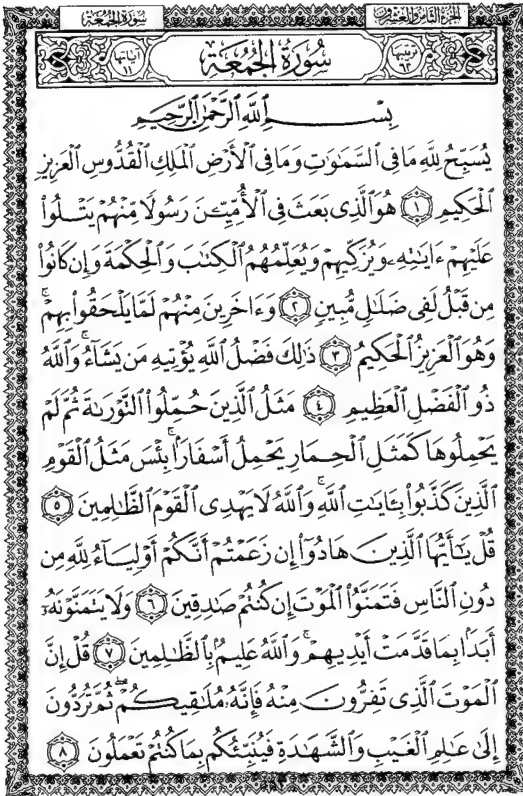 الجزء الثامن والعشرون سورة الجمعة
ترتيبها ٦٢ سُورَةُ الجُمُعَةِ آياتها ١١
بِسْمِ ٱللَّهِ ٱلرَّحْمَٰنِ ٱلرَّحِيمِ
يُسَبِّحُ لِلَّهِ مَا فِى ٱلسَّمَٰوَٰتِ وَمَا فِى ٱلْأَرْضِ ٱلْمَلِكِ ٱلْقُدُّوسِ ٱلْعَزِيزِ
ٱلْحَكِيمِ ١ هُوَ ٱلَّذِى بَعَثَ فِى ٱلْأُمِّيِّـۧنَ رَسُولًا مِّنْهُمْ يَتْلُوا۟
عَلَيْهِمْ ءَايَٰتِهِۦ وَيُزَكِّيهِمْ وَيُعَلِّمُهُمُ ٱلْكِتَٰبَ وَٱلْحِكْمَةَ وَإِن كَانُوا۟
مِن قَبْلُ لَفِى ضَلَٰلٍ مُّبِينٍ ٢ وَءَاخَرِينَ مِنْهُمْ لَمَّا يَلْحَقُوا۟ بِهِمْ ۚ
وَهُوَ ٱلْعَزِيزُ ٱلْحَكِيمُ ٣ ذَٰلِكَ فَضْلُ ٱللَّهِ يُؤْتِيهِ مَن يَشَآءُ ۚ وَٱللَّهُ
ذُو ٱلْفَضْلِ ٱلْعَظِيمِ ٤ مَثَلُ ٱلَّذِينَ حُمِّلُوا۟ ٱلتَّوْرَىٰةَ ثُمَّ لَمْ
يَحْمِلُوهَا كَمَثَلِ ٱلْحِمَارِ يَحْمِلُ أَسْفَارًۢا ۚ بِئْسَ مَثَلُ ٱلْقَوْمِ
ٱلَّذِينَ كَذَّبُوا۟ بِـَٔايَٰتِ ٱللَّهِ ۚ وَٱللَّهُ لَا يَهْدِى ٱلْقَوْمَ ٱلظَّٰلِمِينَ ٥
قُلْ يَٰٓأَيُّهَا ٱلَّذِينَ هَادُوٓا۟ إِن زَعَمْتُمْ أَنَّكُمْ أَوْلِيَآءُ لِلَّهِ مِن
دُونِ ٱلنَّاسِ فَتَمَنَّوُا۟ ٱلْمَوْتَ إِن كُنتُمْ صَٰدِقِينَ ٦ وَلَا يَتَمَنَّوْنَهُۥٓ
أَبَدًۢا بِمَا قَدَّمَتْ أَيْدِيهِمْ ۚ وَٱللَّهُ عَلِيمٌۢ بِٱلظَّٰلِمِينَ ٧ قُلْ إِنَّ
ٱلْمَوْتَ ٱلَّذِى تَفِرُّونَ مِنْهُ فَإِنَّهُۥ مُلَٰقِيكُمْ ۖ ثُمَّ تُرَدُّونَ
إِلَىٰ عَٰلِمِ ٱلْغَيْبِ وَٱلشَّهَٰدَةِ فَيُنَبِّئُكُم بِمَا كُنتُمْ تَعْمَلُونَ ٨